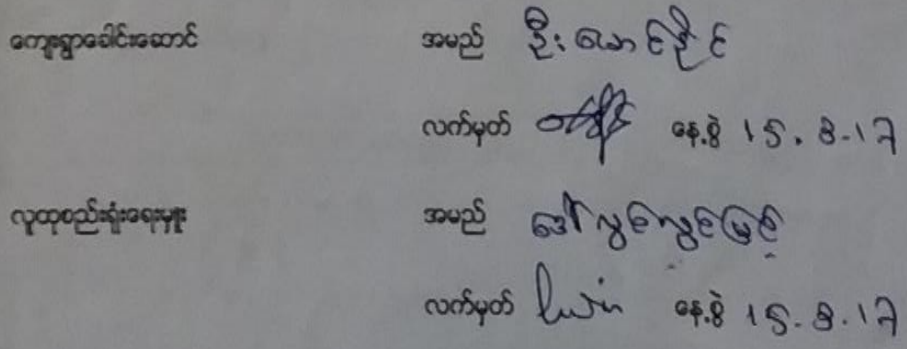 ကျေးရွာခေါင်းဆောင် အမည် ဦးမောင်ဦိုင်
လက်မှတ် နေ့စွဲ 15.8.17
လူထုစည်းရုံးရေးမှူး အမည် ဒေါ်လွင်လွင်မြင့်
လက်မှတ် နေ့စွဲ 15.8.17